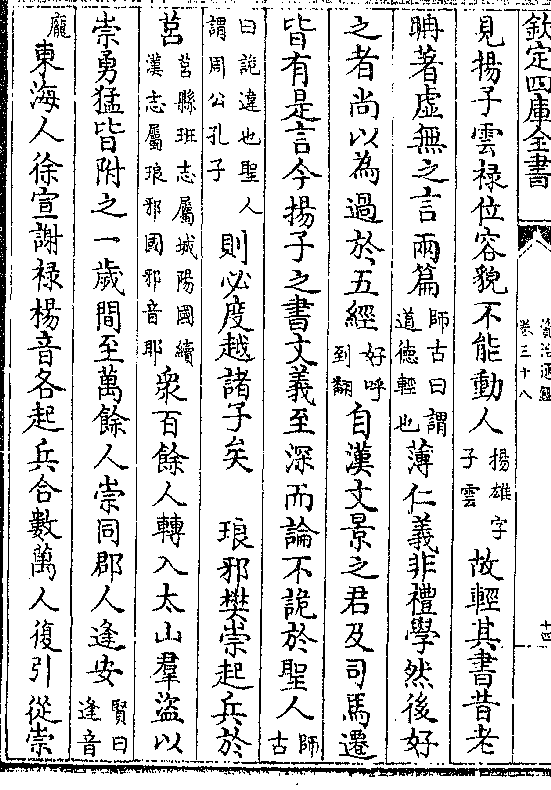 欽定四庫全書
資治通鑑
卷三十八
十四
見揚子雲禄位容貌不能動人揚雄字子雲故輕其書昔老
耼著虚無之言兩篇師古曰謂道德輕也薄仁義非禮學然後好
之者尚以為過於五經好呼到翻自漢文景之君及司馬遷
皆有是言今揚子之書文義至深而論不詭於聖人師古
曰詭違也聖人謂周公孔子則必度越諸子矣　琅邪樊崇起兵於
莒莒縣班志屬城陽國續漢志屬琅邪國邪音耶衆百餘人轉入太山羣盜以
崇勇猛皆附之一歲間至萬餘人崇同郡人逢安賢曰逢音
龐東海人徐宣謝禄楊音各起兵合數萬人復引從崇